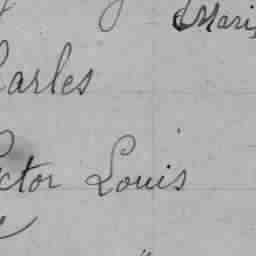 Mari
arles
ctor Louis